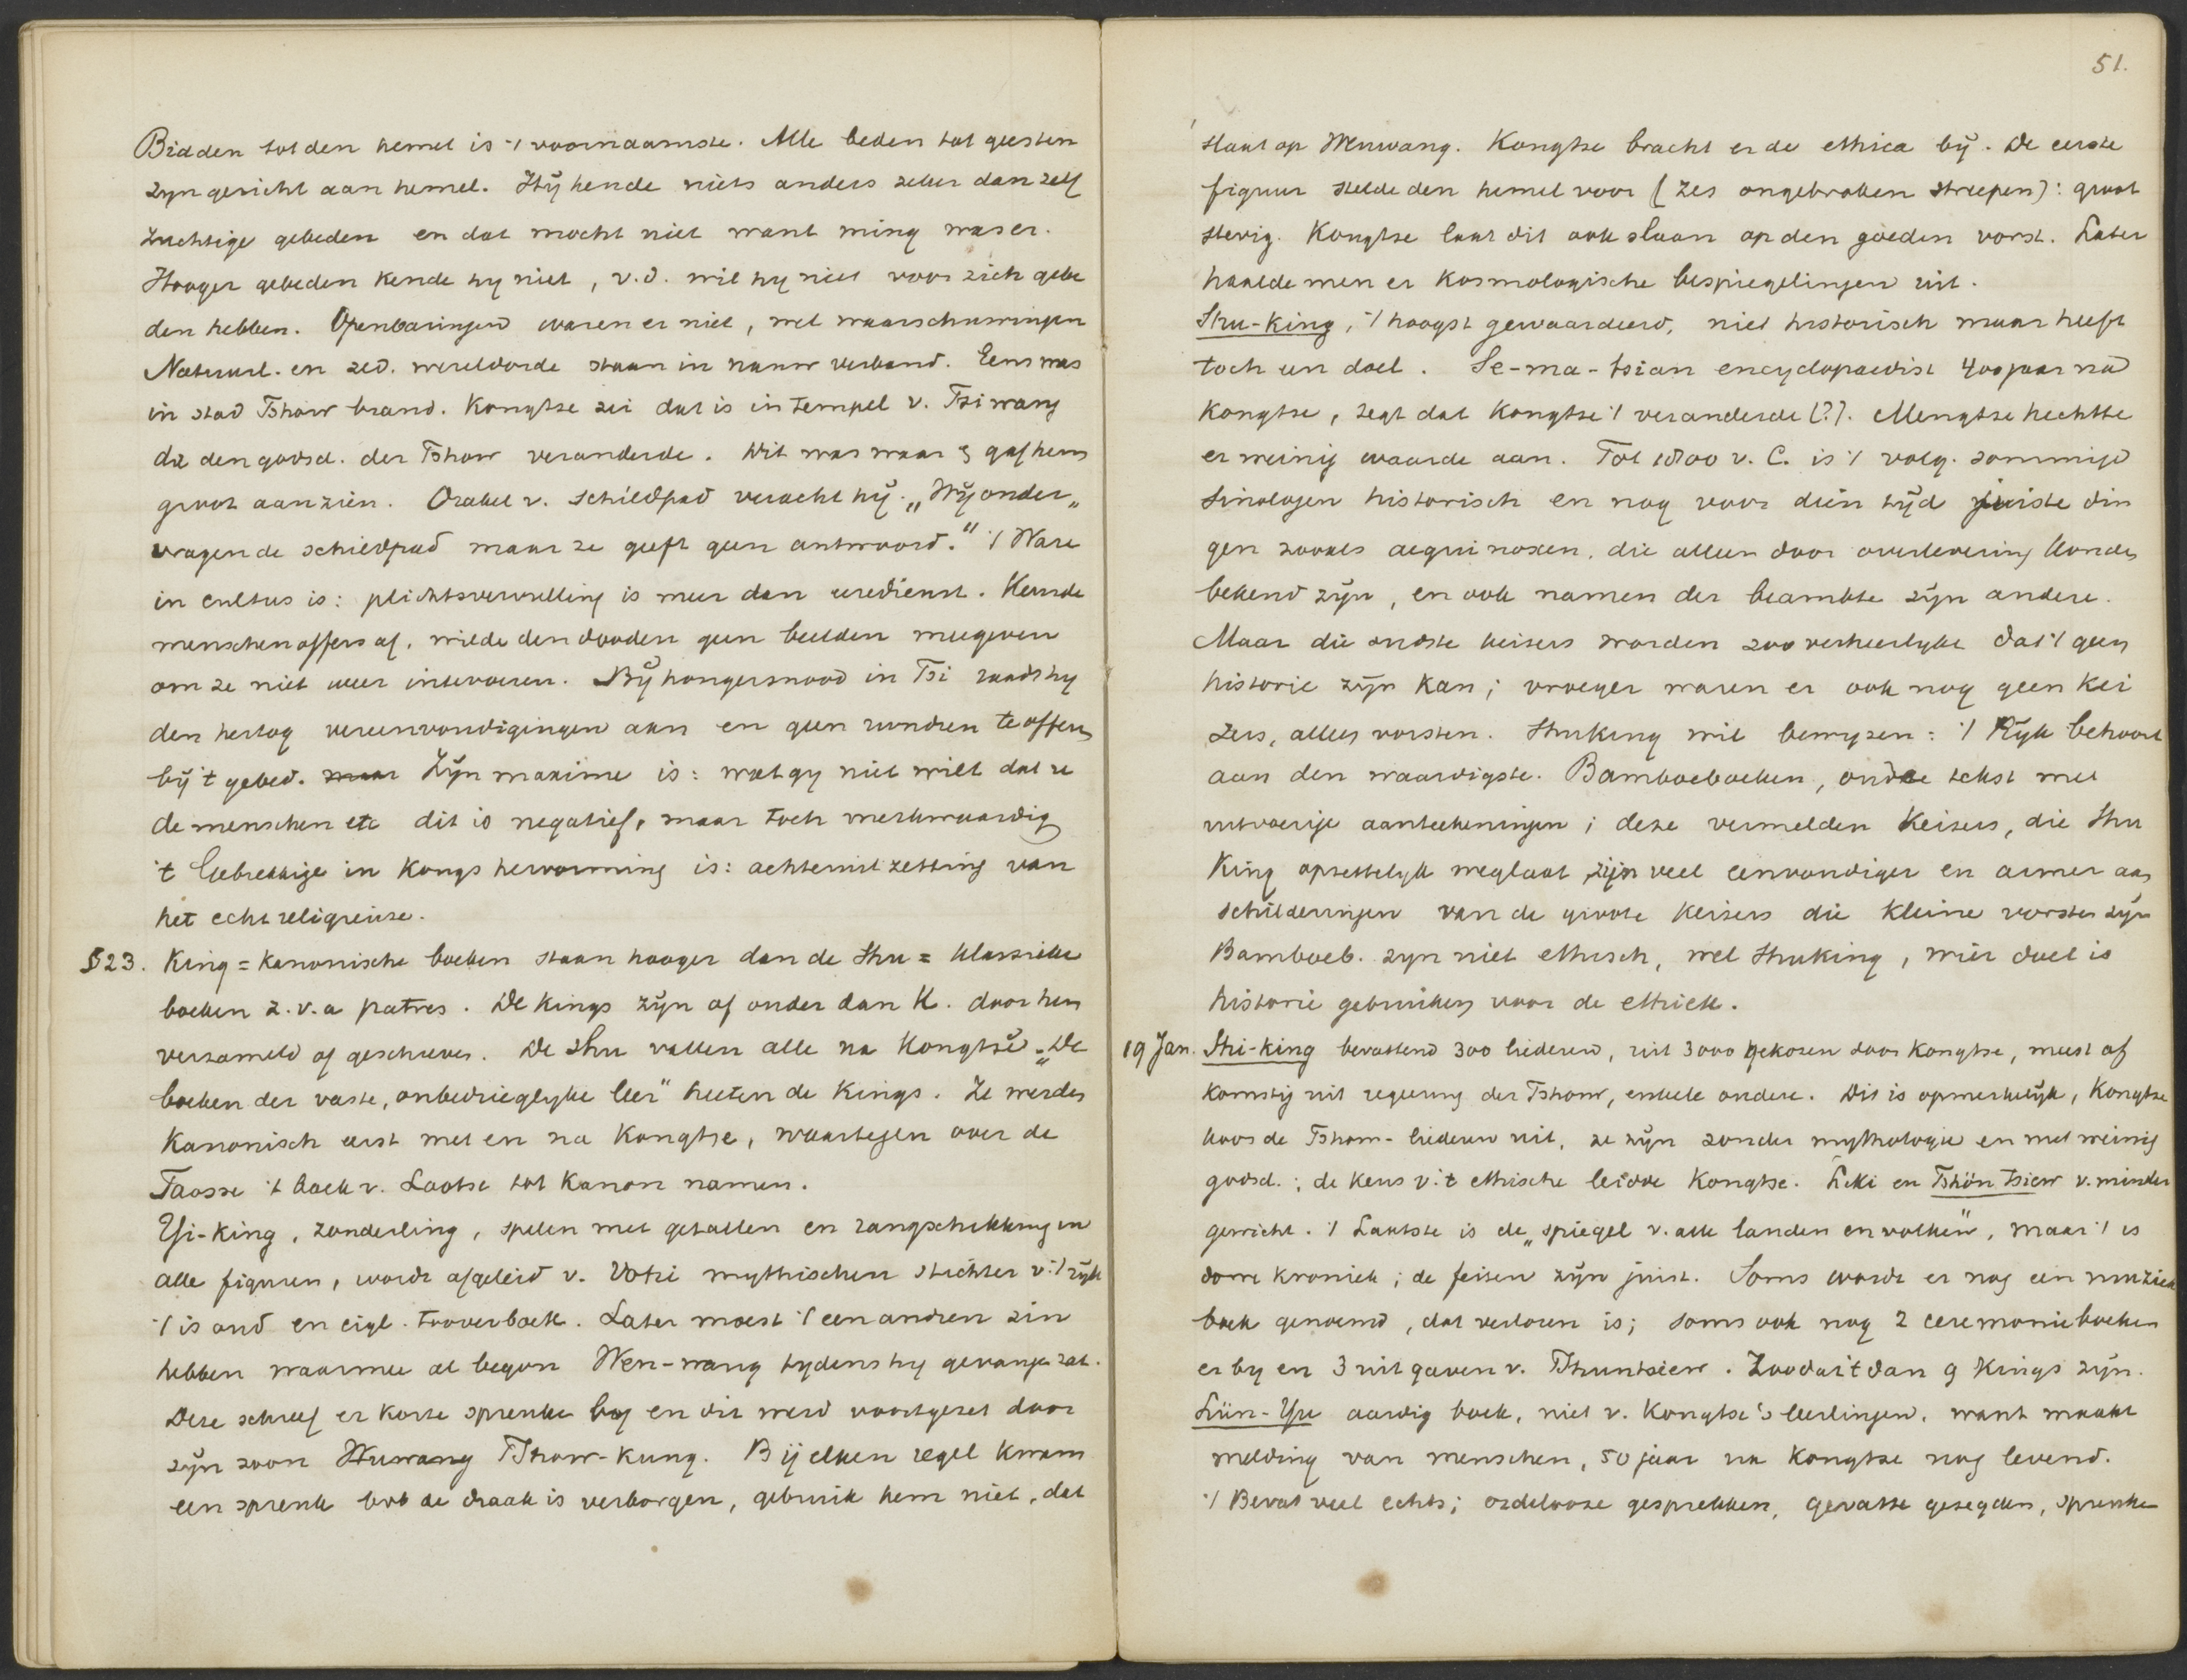 Bidden tot den hemel is 't voornaamste. Alle beden tot geesten
zyn gericht aan hemel. Hÿ kende niets anders zeker dan zelf
zuchtige gebeden en dat mocht niet want ming was er.
Hooger gebeden kende hy niet, v.d. wil hy niet voor zich gebe
den hebben. Openbaringen waren er niet, wel waarschuwingen
Natuurl. en zed. wereldorde staan in nauw verband. Eens was
in stad Tshow brand. Kongtse zei dat is in tempel v. Tsiwang
die den godsd. der Tshow veranderde. Dit was waar & gaf hem
groot aanzien. Orakel v. schildpad veracht hÿ. „Wÿ onder„
vragen de schildpad maar ze geeft geen antwoord." 't Ware
in cultus is: plichtsvervulling is meer dan eredienst. Keurde
menschenoffers af, wilde den dooden geen beelden meegeven
om ze niet weer intevoeren. Bÿ hongersnood in Tsi raadt hy
den hertog vereenvoudigingen aan en geen runderen te offeren
bÿ 't gebed. maar Zÿn maxime is: wat gy niet wilt dat u
de menschen etc dit is negatief, maar toch merkwaardig
't Gebrekkige in Kongs hervorming is: achteruitzetting van
het echt religieuse.
§23. King = kanonische boeken staan hooger dan de Shu = klassieke
boeken z.v.a patres. De Kings zÿn of ouder dan K. door hem
verzameld of geschreven. De Shu vallen alle na Kongtsë. „De
boeken der vaste, onbedrieglyke leer" heeten de Kings. Ze werden
Kanonisch eerst met en na Kongtse, waartegen over de
Taosse 't boek v. Laotse tot Kanon namen.
Yi-King, zonderling, spelen met getallen en rangschikking in
alle figuren, wordt afgeleid v. mythischen stichter v. 't rÿk
't is oud en eigl. tooverboek. Later moest 't een andren zin
hebben waarmee al begon Wen-wang tydens hy gevangen zat.
Deze schreef er korte spreuken bÿ en dit werd voortgezet door
zÿn zoon Wuwang Tshow-Kung. Bÿ elken regel kwam
een spreuk bvb de draak is verborgen, gebruik hem niet, dat
51.
slaat op Wenwang. Kongtse bracht er de ethica bÿ. De eerste
figuur stelde den hemel voor (zes ongebroken streepen): groot
stevig. Kongtse laat dit ook slaan op den goeden vorst. Later
haalde men er Kosmologische bespiegelingen uit.
Shu-King, 't hoogst gewaardeerd, niet historisch maar heeft
toch een doel. Se-ma-tsian encyclopaedist 400 jaar na
Kongtse, zegt dat Kongtse 't veranderde (?). Mengtse hechtte
er weinig waarde aan. Tot 1800 v. C. is 't volg. sommige
Sinologen historisch en nog voor dien tÿd juiste din
gen zooals aequinoxen, die alleen door overlevering konden
bekend zÿn, en ook namen der beambte zÿn andere.
Maar die oudste keizers worden zoo verheerlykt dat 't geen
historie zÿn kan; vroeger waren er ook nog geen kei
zers, alleen vorsten. Shuking wil bewyzen: 't Rÿk behoort
aan den waardigste. Bamboeboeken, oude tekst met
uitvoerige aanteekeningen; deze vermelden Keizers, die Shu
King opzettelyk weglaat, zijn veel eenvoudiger en armer aan
schilderingen van de groote keizers die kleine vorsten zÿn
Bamboeb. zyn niet ethisch, wel Shuking, wier doel is
historie gebruiken voor de ethiek.
19 Jan. Shi-king bevattend 300 liederen, uit 3000 gekozen door Kongtse, meest af
komstig uit regeering der Tshow, enkele andere. Dit is opmerkelÿk, Kongtse
koos de Tshow-liederen uit, ze zÿn zonder mythologie en met weinig
godsd.; de keus v. 't ethische leidde Kongtse. Leki en Tshön Tsiew v. minder
gewicht. 't Laatste is de „spiegel v. alle landen en volken", maar 't is
dorre kroniek; de feiten zÿn juist. Soms wordt er nog een muziek
boek genoemd, dat verloren is; soms ook nog 2 ceremonieboeken
er by en 3 uitgaven v. Tshuntsiew. Zoodat 't dan 9 Kings zÿn.
Lün-Yu aardig boek, niet v. Kongtse's leerlingen, want maakt
melding van menschen, 50 jaar na Kongtse nog levend.
't Bevat veel echts; ordelooze gesprekken, gevatte gezegden, spreuken